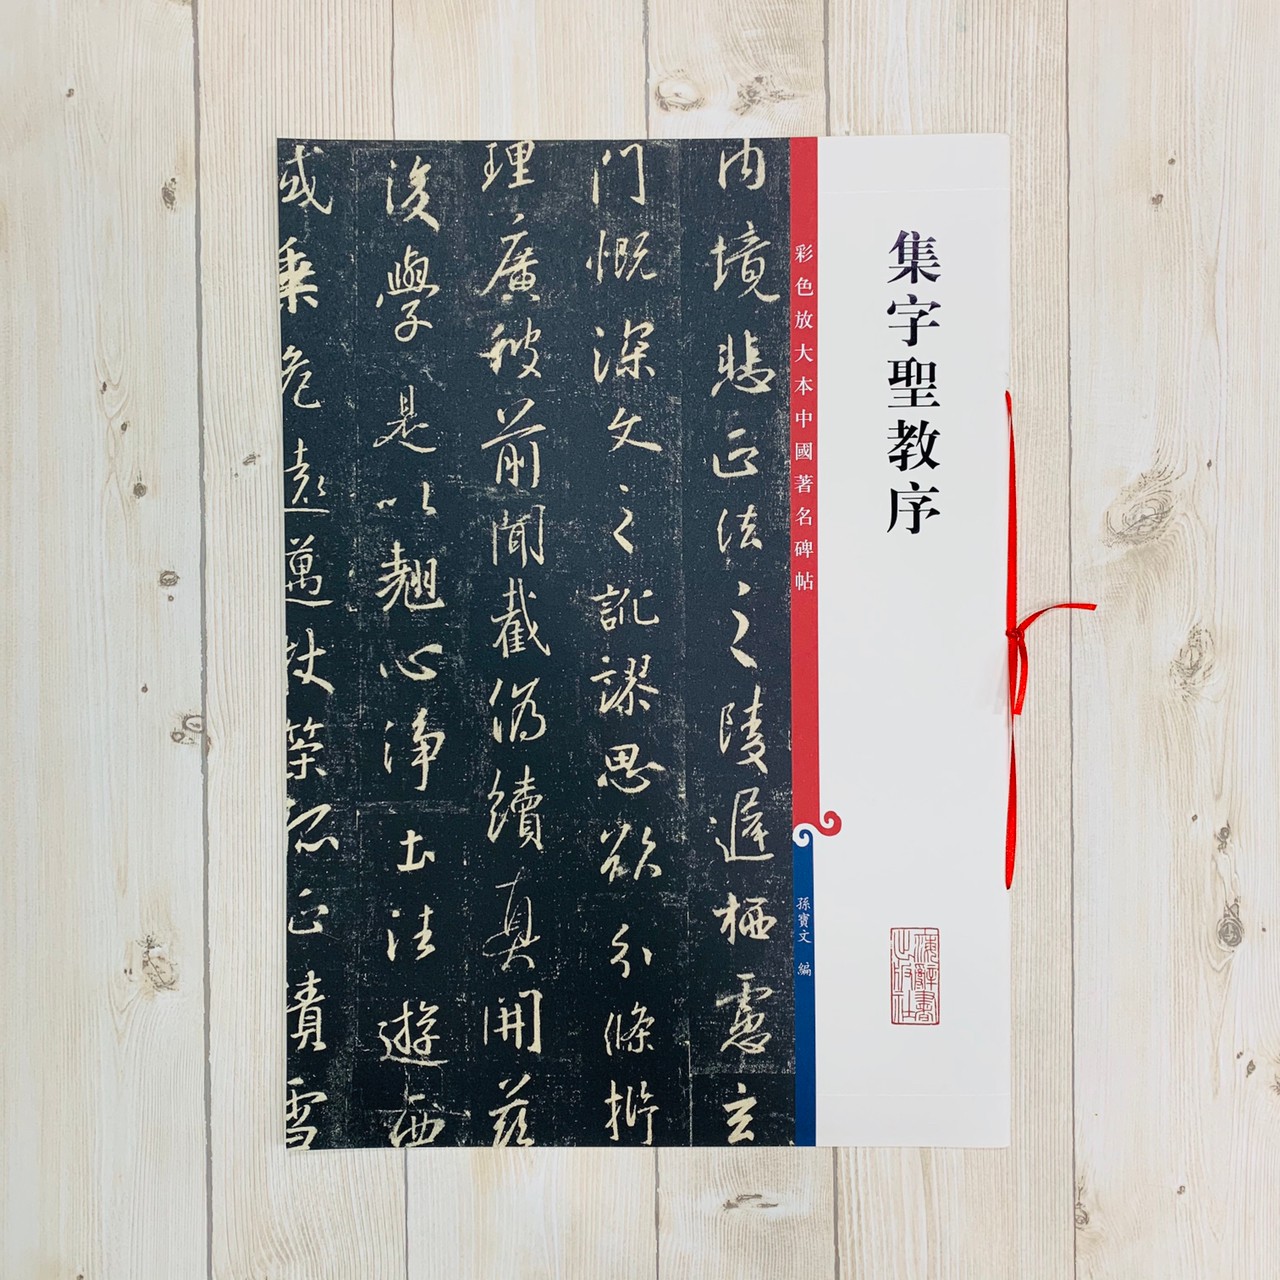 集字聖教序
上海辭書出版社
彩色放大本中國著名碑帖
孫寶文 編
内境悲正法之陵遲栖慮玄
門慨深文之訛謬思欲分條析
理廣彼前聞截偽續真開茲
後學是以翹心淨土法遊西
域乘危遠邁杖策孤征積雪